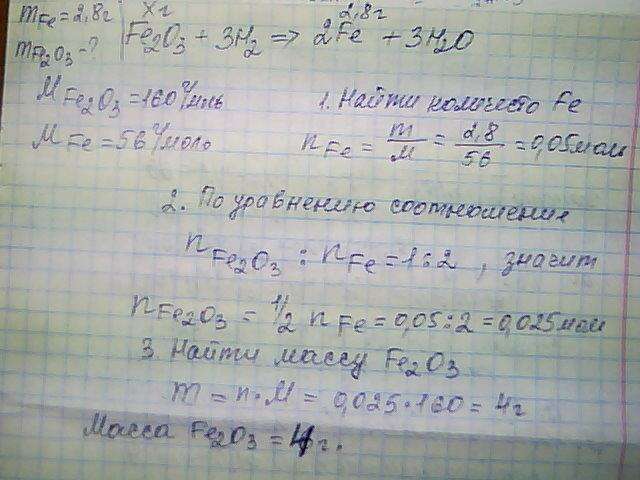 mFe = 2,8г
mFe2O3 - ?
Xг 2,8г
Fe2O3 + 3H2 => 2Fe + 3H2O
MFe2O3 = 160 г/моль
MFe = 56 г/моль
1. Найти количесто Fe
nFe = m/M = 2,8/56 = 0,05 моль
2. По уравнению соотношение
nFe2O3 : nFe = 1:2, значит
nFe2O3 = 1/2 nFe = 0,05:2 = 0,025 моль
3. Найти массу Fe2O3
m = n·M = 0,025·160 = 4г
Масса Fe2O3 = 4г.